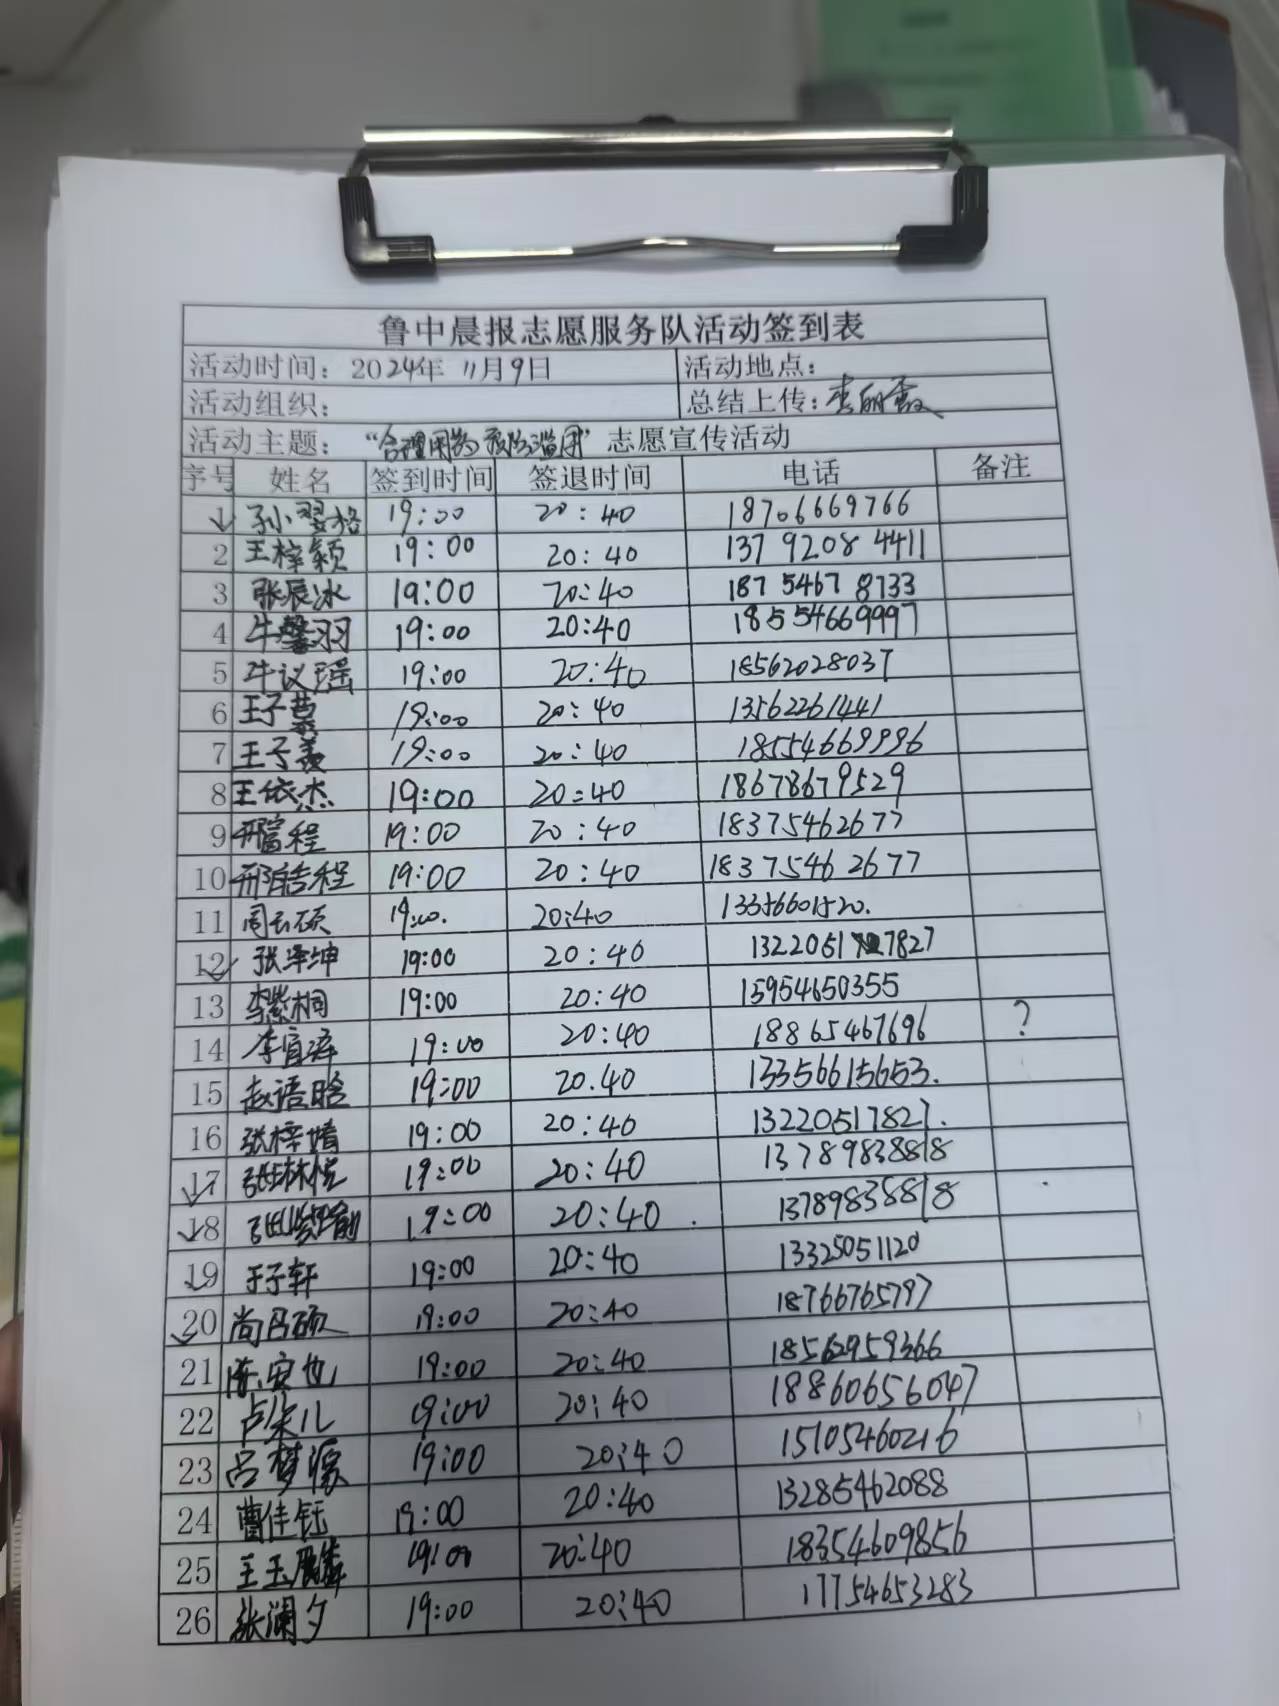 鲁中晨报志愿服务队活动签到表
活动时间：2024年 11月9日 活动地点：
活动组织： 总结上传：李丽霞
活动主题： “合理用药 预防滥用” 志愿宣传活动
序号 姓名 签到时间 签退时间 电话 备注
1 孙翌格 19:00 20:40 18706669766
2 王梓颖 19:00 20:40 13792084411
3 张辰冰 19:00 20:40 18754678733
4 牛馨羽 19:00 20:40 18554669997
5 牛议瑶 19:00 20:40 18562028037
6 王子慕 19:00 20:40 13562261441
7 王子羡 19:00 20:40 18554669996
8 王依杰 19:00 20:40 18678679529
9 邢富程 19:00 20:40 18375462677
10 邢皓程 19:00 20:40 18375462677
11 周云硕 19:00. 20:40 13356601520.
12 张泽坤 19:00 20:40 13220517827
13 李紫桐 19:00 20:40 15954650355
14 李宜泽 19:00 20:40 18865467696 ?
15 赵语晗 19:00 20.40 13356615653.
16 张梓婧 19:00 20:40 13220517827.
17 张林悦 19:00 20:40 13789838818
18 19:00 20:40. 13789838818
19 于子轩 19:00 20:40 13325051120
20 尚吕硕 19:00 20:40 18766765797
21 陈安也 19:00 20:40 18562959366
22 卢朵儿 19:00 20:40 18860656047
23 吕梦源 19:00 20:40 15105460216
24 曹佳钰 19:00 20:40 13285462088
25 王玉麟 19:00 20:40 18354609856
26 张澜夕 19:00 20:40 17754653283